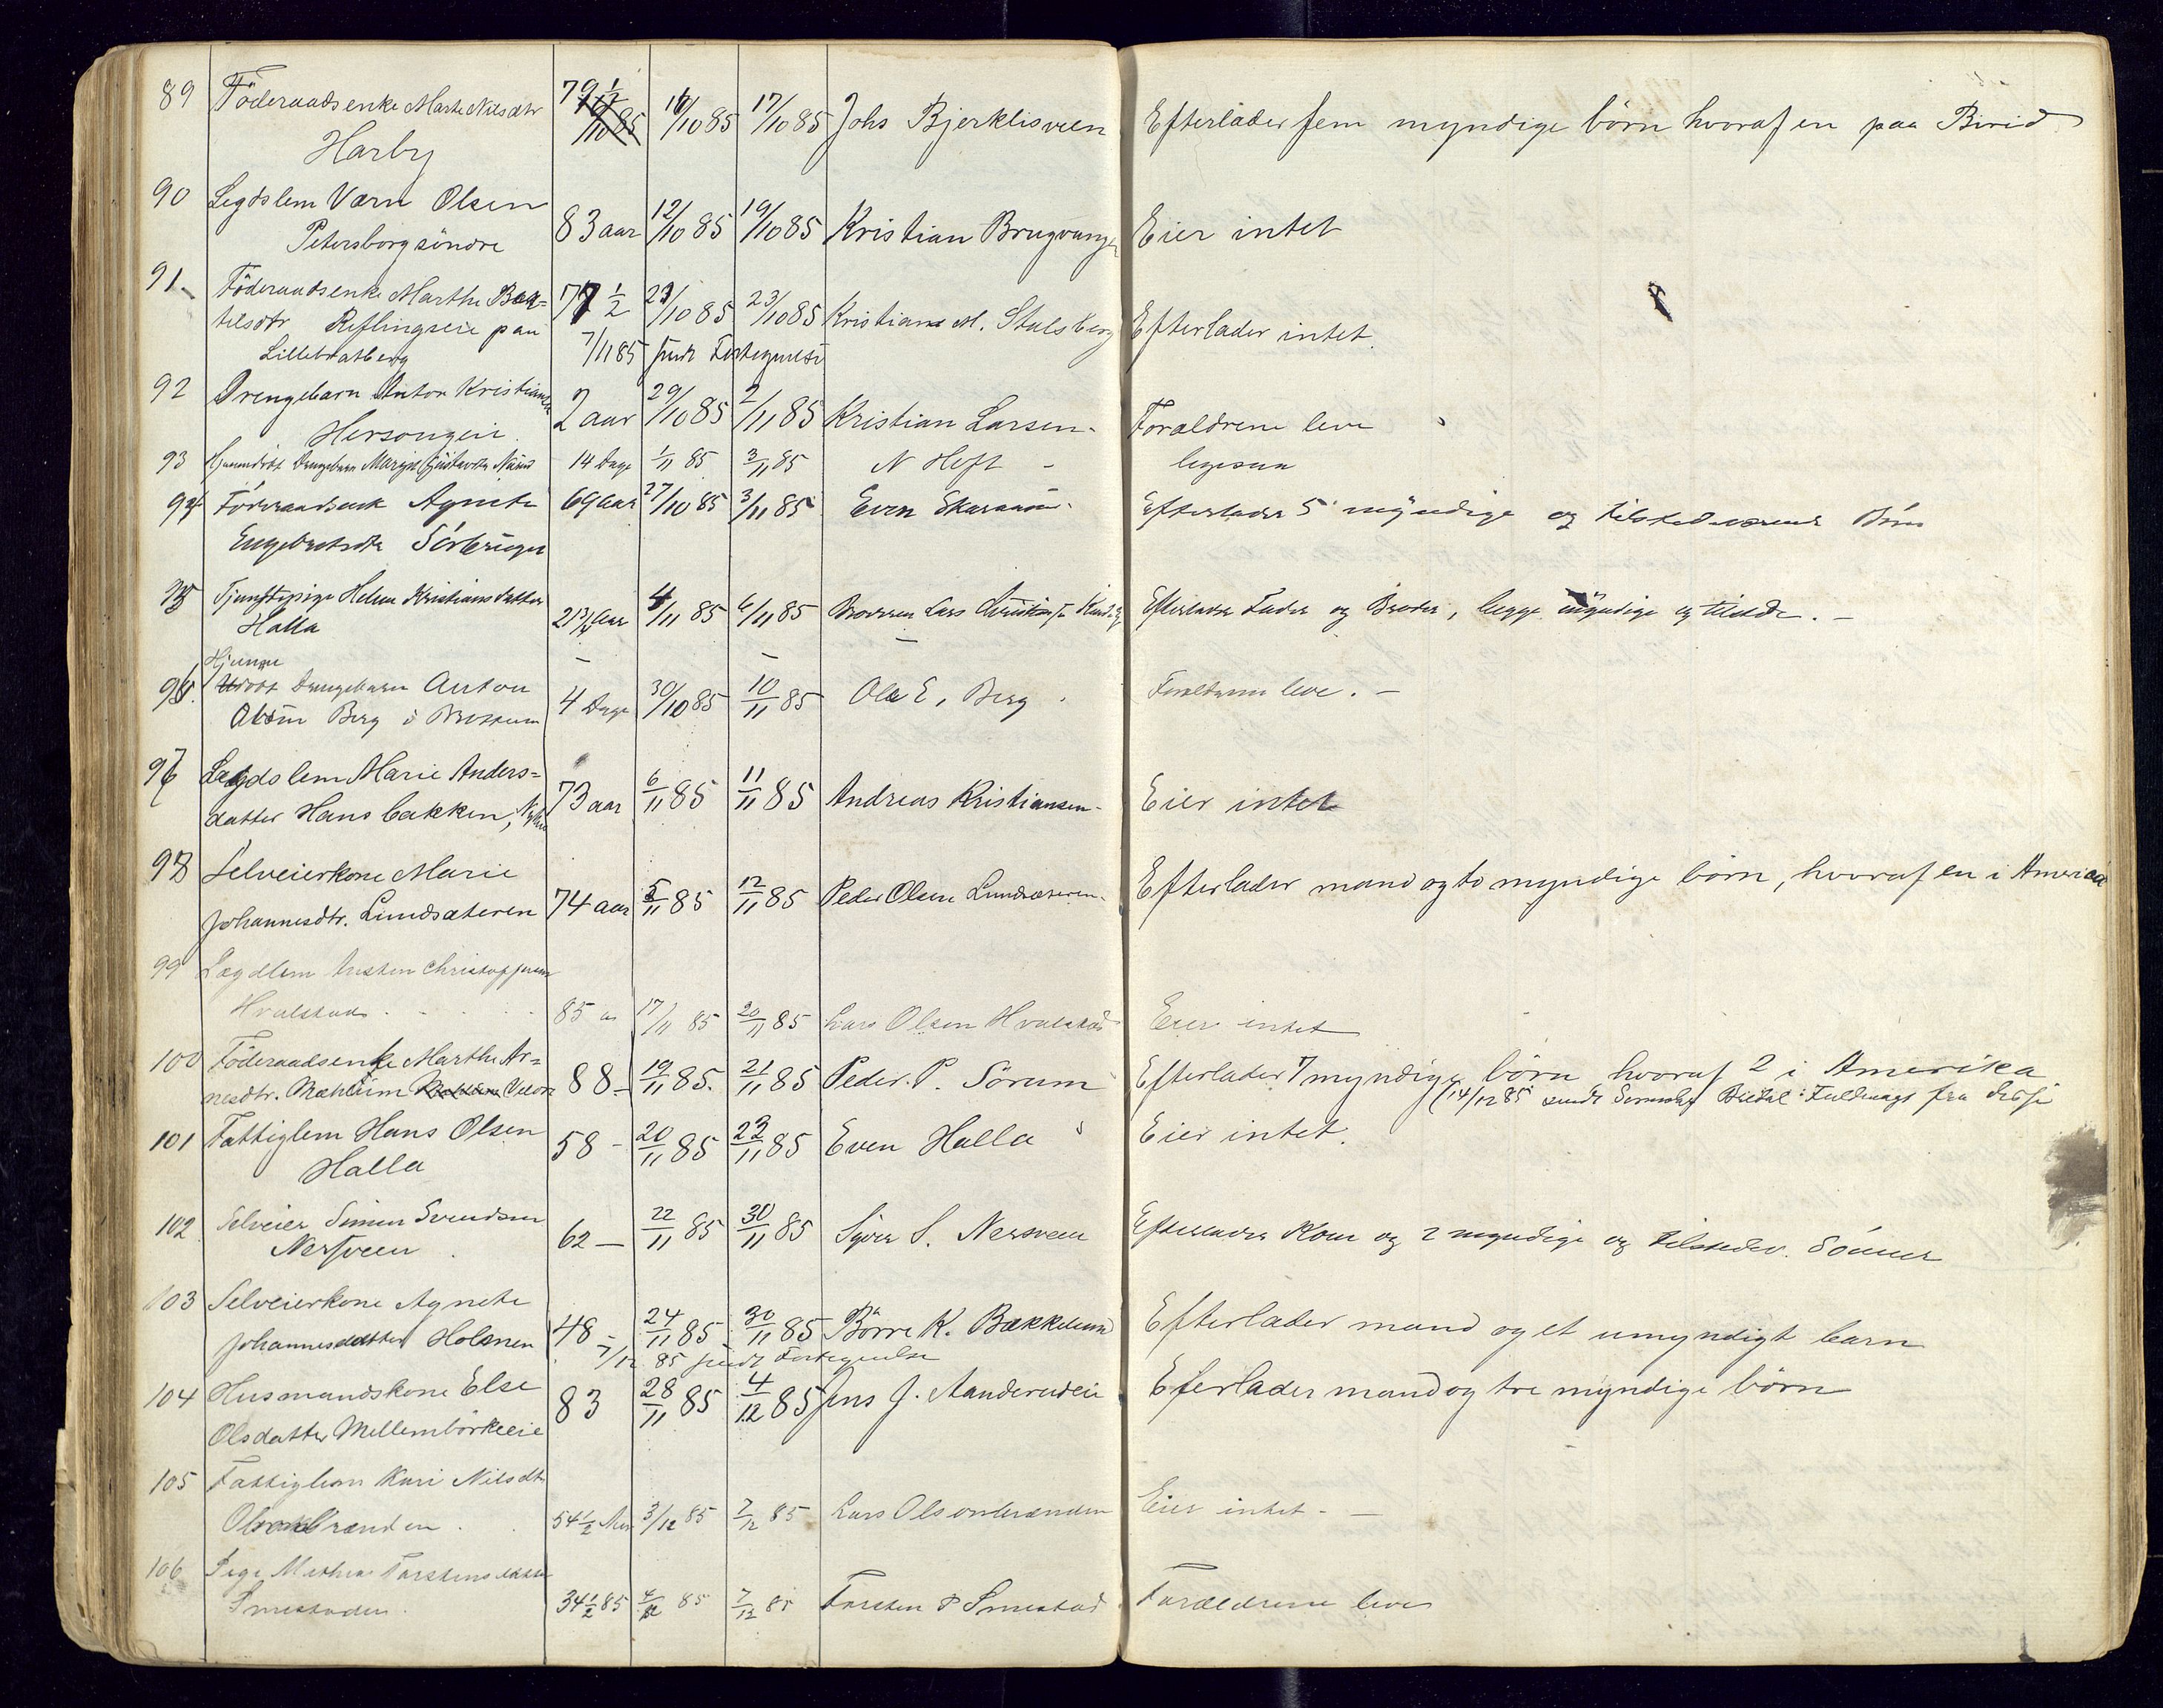 89 Föderaadsenke Marte Nilsdtr 79 1/2 16/10 85 17/10 85 Johs Bjerklisveen Efterlader fem myndige börn hvoraf en paa Birid
Harby
90 Legdslem Værn Olsen
Petersborg söndre 83 aar 12/10 85 19/10 85 Kristian Brugvangen Eier intet
91. Föderaadsenke Marthe Bær=
tilsdtr Reflingseie paa 77 1/2 21/10 85 23/10 85 Kristian M. Stalsberg Efterlader intet.
Lillebratberg 7/11 85 sendt Fortegnelse
92 Drengebarn Anton Kristiansen
Hersougeie. 2 aar 29/10 85 2/11 85 Kristian Larsen. Forældrene leve
93 Hjemmedöbt Drengebarn Gustavsen Næss 14 Dage 1/11 85 3/11 85 N Heft - ligesaa
94 Föderaadsenk Agnete 69 Aar 27/10 85 3/11 85 Even Skaraaen. Efterlader 5 myndige og tilstedeværende Börn
Engebretsdtr Sörbrugen
95 Tjenstepige Helene Kristiansdatter
Halla 21 3/4 Aar 4/11 85 6/11 85 Broderen Lars Efterlader Fader og Broder, begge myndige og tilstede. -
Hjemme
96. döbt Drengebarn Anton
Berg i Brøttum 4 Dage 30/10 85 10/11 85 Ole E. Berg. Forældrene leve. -
97 Lægdslem Marie Anders=
datter Hansbakken, 73 aar 6/11 85 11/11 85 Andreas Kristiansen. Eier intet
98 Selveierkone Marie
Johannesdtr. Lundsæteren 74 aar 5/11 85 12/11 85 Peder Olsen Lundsæteren. Efterlader mand og to myndige börn, hvoraf en i America
99 Lægdlem Austen Christophersen
Hvalstad 85 aar 17/11 85 20/11 85 Lars Olsen Hvalstad Eier intet
100 Föderaadsenke Marthe Ar=
nesdtr. Mæhlum 88 - 19/11 85. 21/11 85 Peder. P. Sörum Efterlader 7 myndige börn hvoraf 2 i Amerika
(14/12 85 sendt Fuldmagt fra
101 Fattiglem Hans Olsen
Halla 58 - 20/11 85 23/11 85 Even Halla Eier intet.
102 Selveier Simen Svendsen
Nersveen. 62 - 22/11 85 30/11 85 Syver S. Nersveen Efterlader Kone og 2 myndige og tilstedev. Sönner
103 Selveierkone Agnete
Johannesdatter Holmen 48 - 24/11 85 30/11 85 Börre K. Bækkelund Efterlader mand og et umyndigt barn
7/12 85 sendt Fortegnelse
104 Husmandskone Else
Olsdatter Mellembörkeeie 83 28/11 85 4/12 85 Jens J. Aanderudeie Eferlader mand og tre myndige börn
105 Fattiglem Kari Nilsdtr
Olsonbrænden. 54 1/2 Aar 3/12 85 7/12 85 Lars Olsonbrænden Eier intet. -
106 Pige Mathea Torstensdatter
Smestaden. 34 1/2 85 4/12 85 7/12 85 Torsten P Smestad Forældrene leve